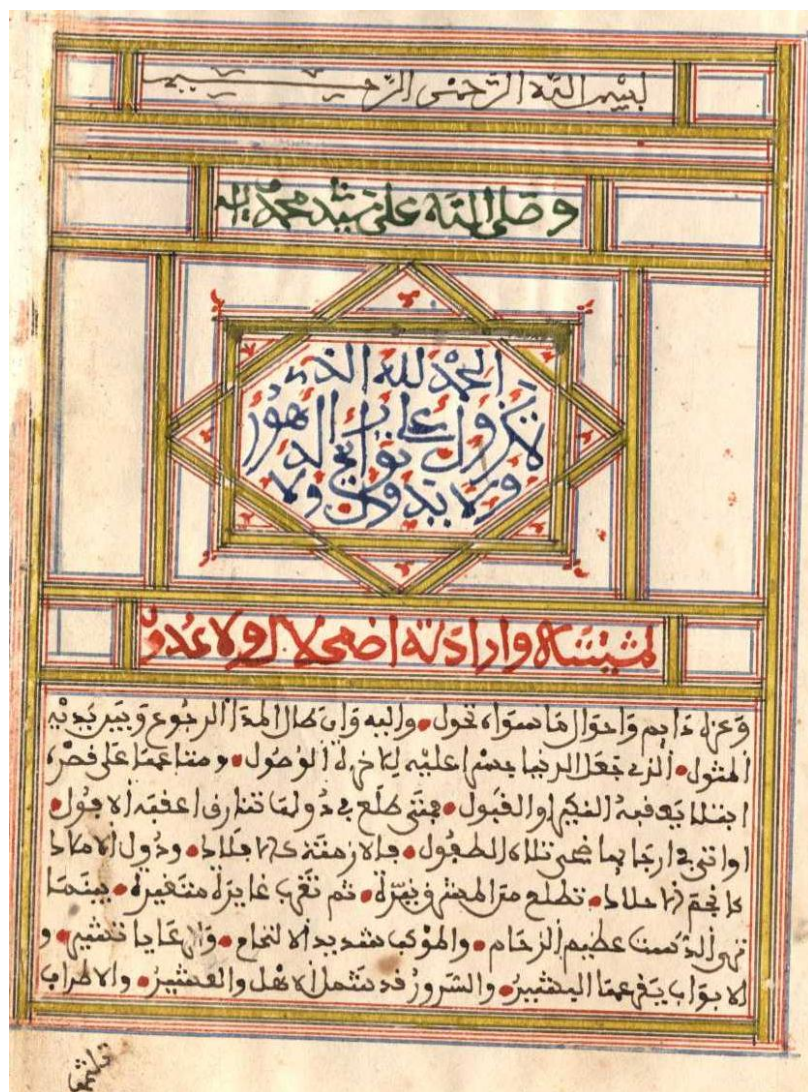 بسم الله الرحمن الرحيم
وصلى الله على سيد محمد
الحمد لله الذي
لا
الدهور
ولا ولا
لمشيئته وارادته اضمحلال ولا عدول
وعزه دايم واحوال ما سواه تحول • واليه وان طال المدا الرجوع وبين يديه
المثول • الذي جعل الدنيا جسرا عليه للاخرة الوصول • ومتاعها على قصره
ابتلا يعقبه النكير او القبول • فمتى طلع بدولها شارق اعقبه الافول •
او اتى بارجايها ضحى تلاه الطفول • فالازمنة ذات • ودول الاملاك
كانجم ذات • تطلع من المشرق نيرة • ثم تغرب غايرة متغيرة • بينما
ترى الدست عظيم الزحام • والموكب شديد الالتحام • والرعايا تشير • و
الابواب يقرعها البشير • والسرور قد شمل الاهل والعشير • والاطراب